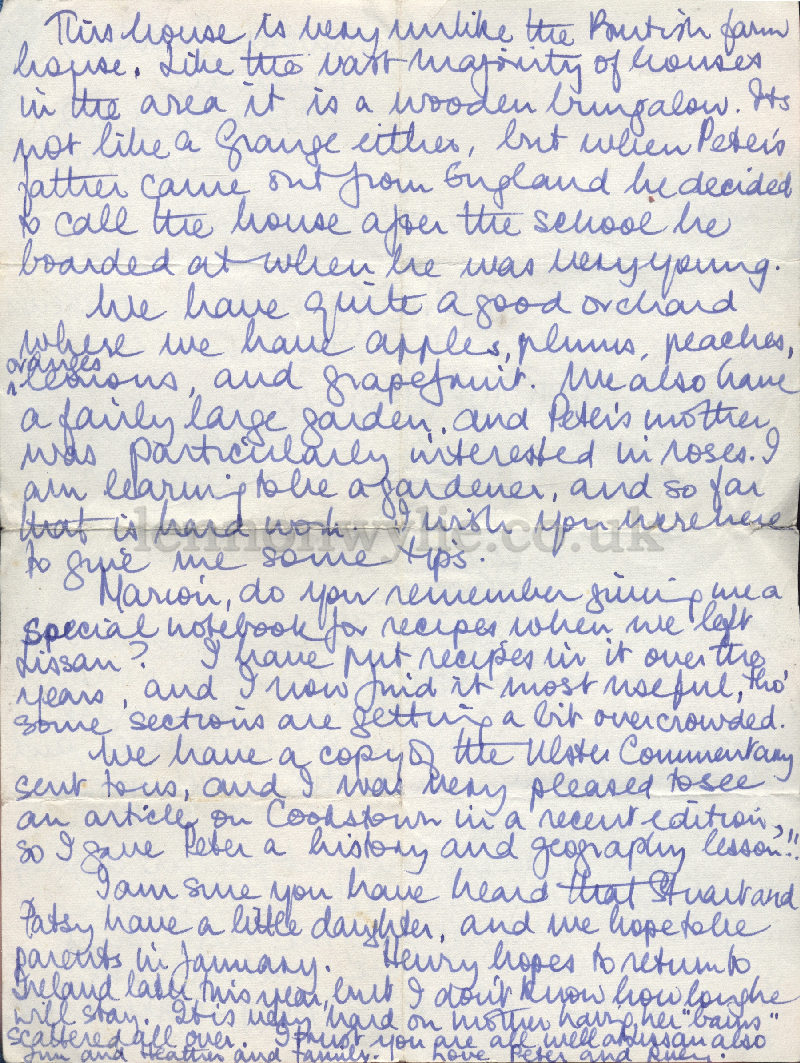 This house is very unlike the British farm
house. Like the vast majority of houses
in the area it is a wooden bungalow. Its
not like a Grange either, but when Peter's
father came out from England he decided
to call the house after the school he
boarded at when he was very young.
We have quite a good orchard
where we have apples, plums, peaches,
oranges
lemons, and grapefruit. We also have
a fairly large garden, and Peter's mother
was particularly interested in roses. I
am learning to be a gardener, and so far
that is hard work. I wish you were here
to give me some tips.
Marion, do you remember giving me a
special notebook for recipes when we left
Lissan? I have put recipes in it over the
years, and I now find it most useful, tho'
some sections are getting a bit overcrowded.
We have a copy of the Ulster Commentary
sent to us, and I was very pleased to see
an article on Cookstown in a recent edition,
so I gave Peter a history and geography lesson!!
I am sure you have heard that Stuart and
Patsy have a little daughter, and we hope to be
parents in January. Henry hopes to return to
Ireland later this year, but I don't know how long he
will stay. It is very hard on mother having her "bairns"
scattered all over. I trust you are all well at Lissan also
Jim and Heather and family. Love Peter and
lennonwylie.co.uk